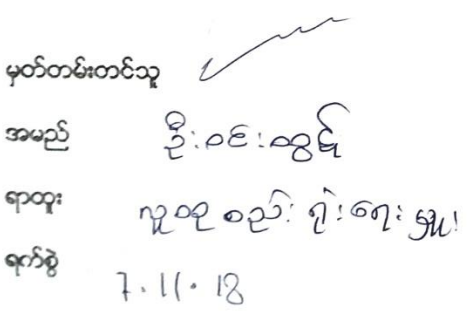 မှတ်တမ်းတင်သူ
အမည် ဦးဝင်းထွဋ်
ရာထူး လူထုစည်းရုံးရေးမှူး
ရက်စွဲ 7.11.18